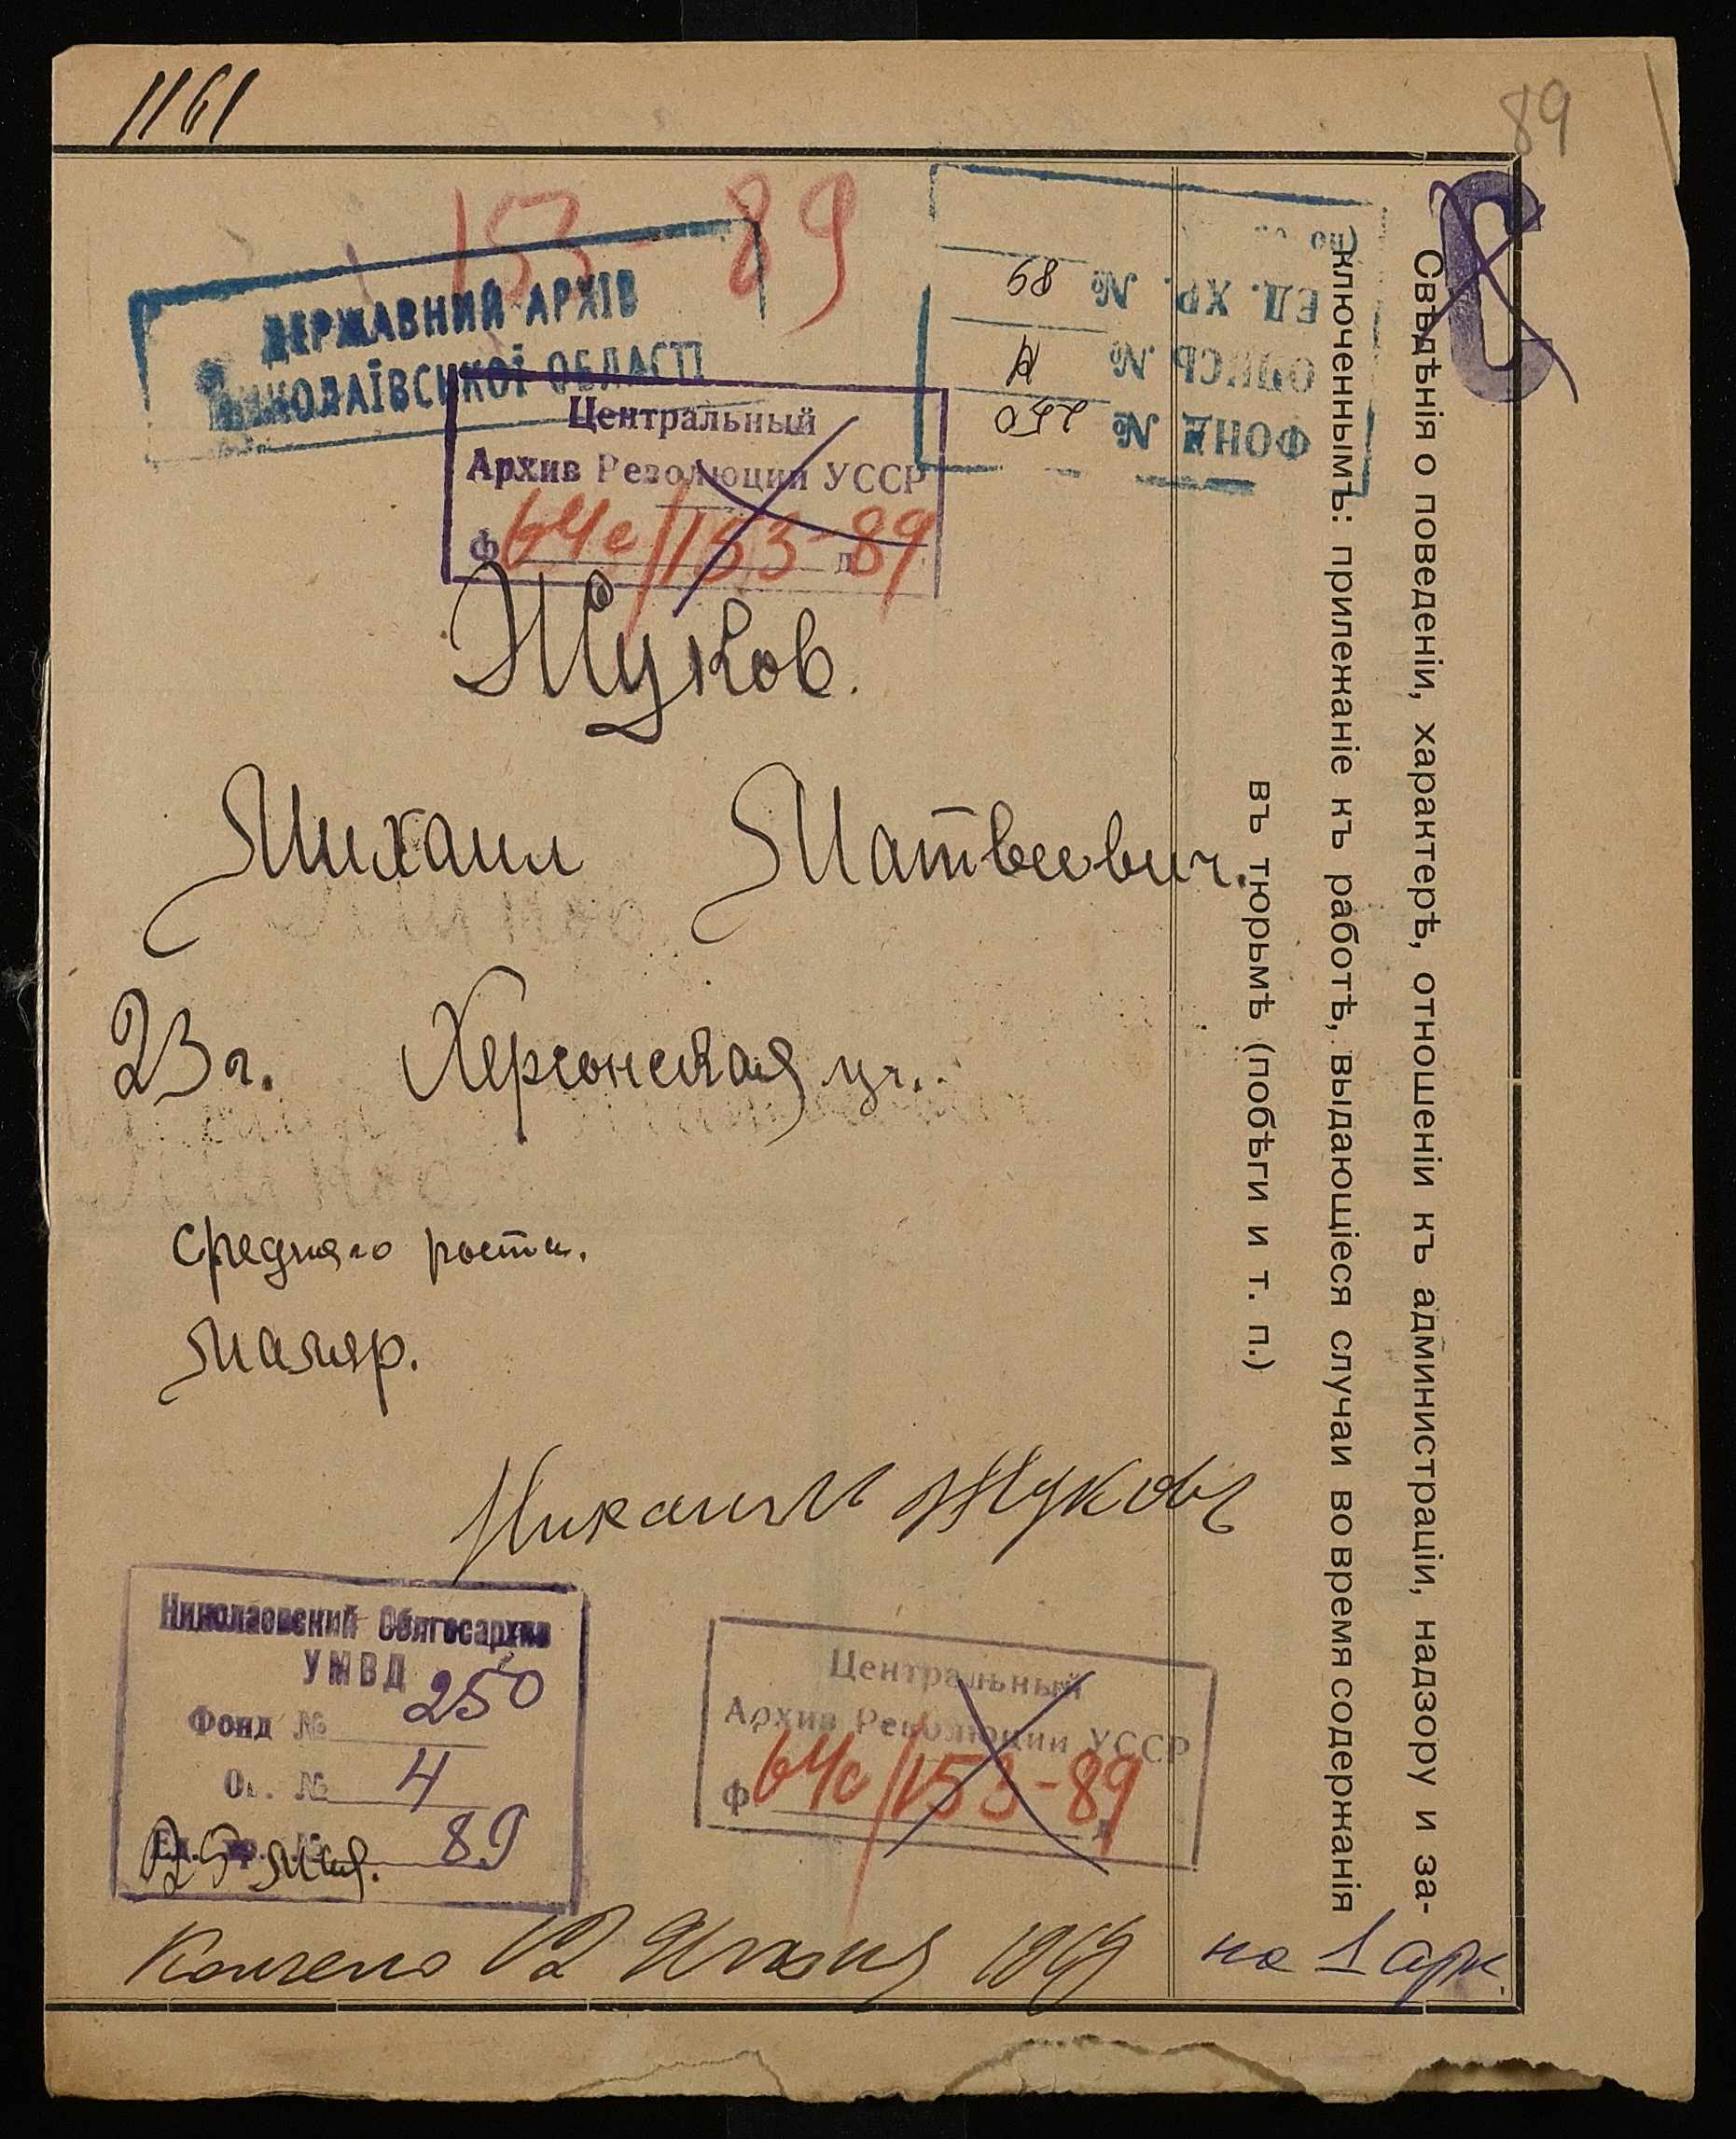 1161
89
153-89
ДЕРЖАВНИЙ АРХІВ
МИКОЛАЇВСЬКОЇ ОБЛАСТІ
ФОНД № 250
ОПИСЬ № 4
ЕД. ХР. № 89
Центральный
Архив Революции УССР
Ф 64с/153-89
Жуков.
Михаил Матвеевич.
23 г. Херсонская
среднего роста.
Маляр.
Михаил Жуков
Николаевский Облгосархив
УМВД
Фонд № 250
Оп. № 4
Ед. хр. № 89
Центральный
Архив Революции УССР
Ф 64с/153-89
1919
на 1 арк.
Свѣдѣнія о поведеніи, характерѣ, отношеніи къ администраціи, надзору и за-
ключеннымъ: прилежаніе къ работѣ, выдающіеся случаи во время содержанія
въ тюрьмѣ (побѣги и т. п.)